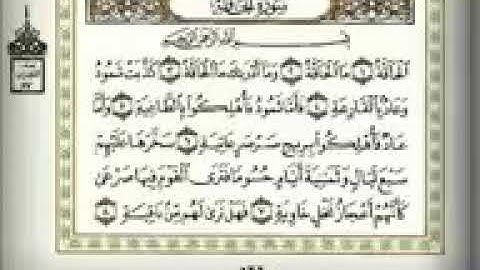 سورة الحاقة
بسم الله الرحمن الرحيم
الحاقة ١ ما الحاقة ٢ وما أدراك ما الحاقة ٣ كذبت ثمود
وعاد بالقارعة ٤ فأما ثمود فأهلكوا بالطاغية ٥ وأما
عاد فأهلكوا بريح صرصر عاتية ٦ سخرها عليهم
سبع ليال وثمانية أيام حسوما فترى القوم فيها صرعى
كأنهم أعجاز نخل خاوية ٧ فهل ترى لهم من باقية ٨